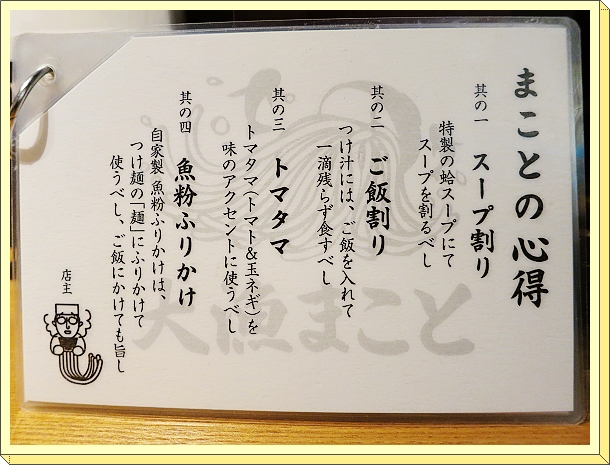 まことの心得
其の一 スープ割り
特製の蛤スープにて
スープを割るべし
其の二 ご飯割り
つけ汁には、ご飯を入れて
一滴残らず食すべし
其の三 トマタマ
トマタマ(トマト&玉ネギ)を
味のアクセントに使うべし
其の四 魚粉ふりかけ
自家製 魚粉ふりかけは、
つけ麺の「麺」にふりかけて
使うべし、ご飯にかけても旨し
店主
大漁まこと